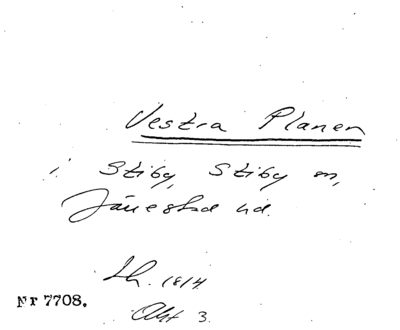 Vestra Planen
i Stiby, Stiby sn,
Järrestad hd.
Lh. 1814
Akt 3.
Nr 7708.